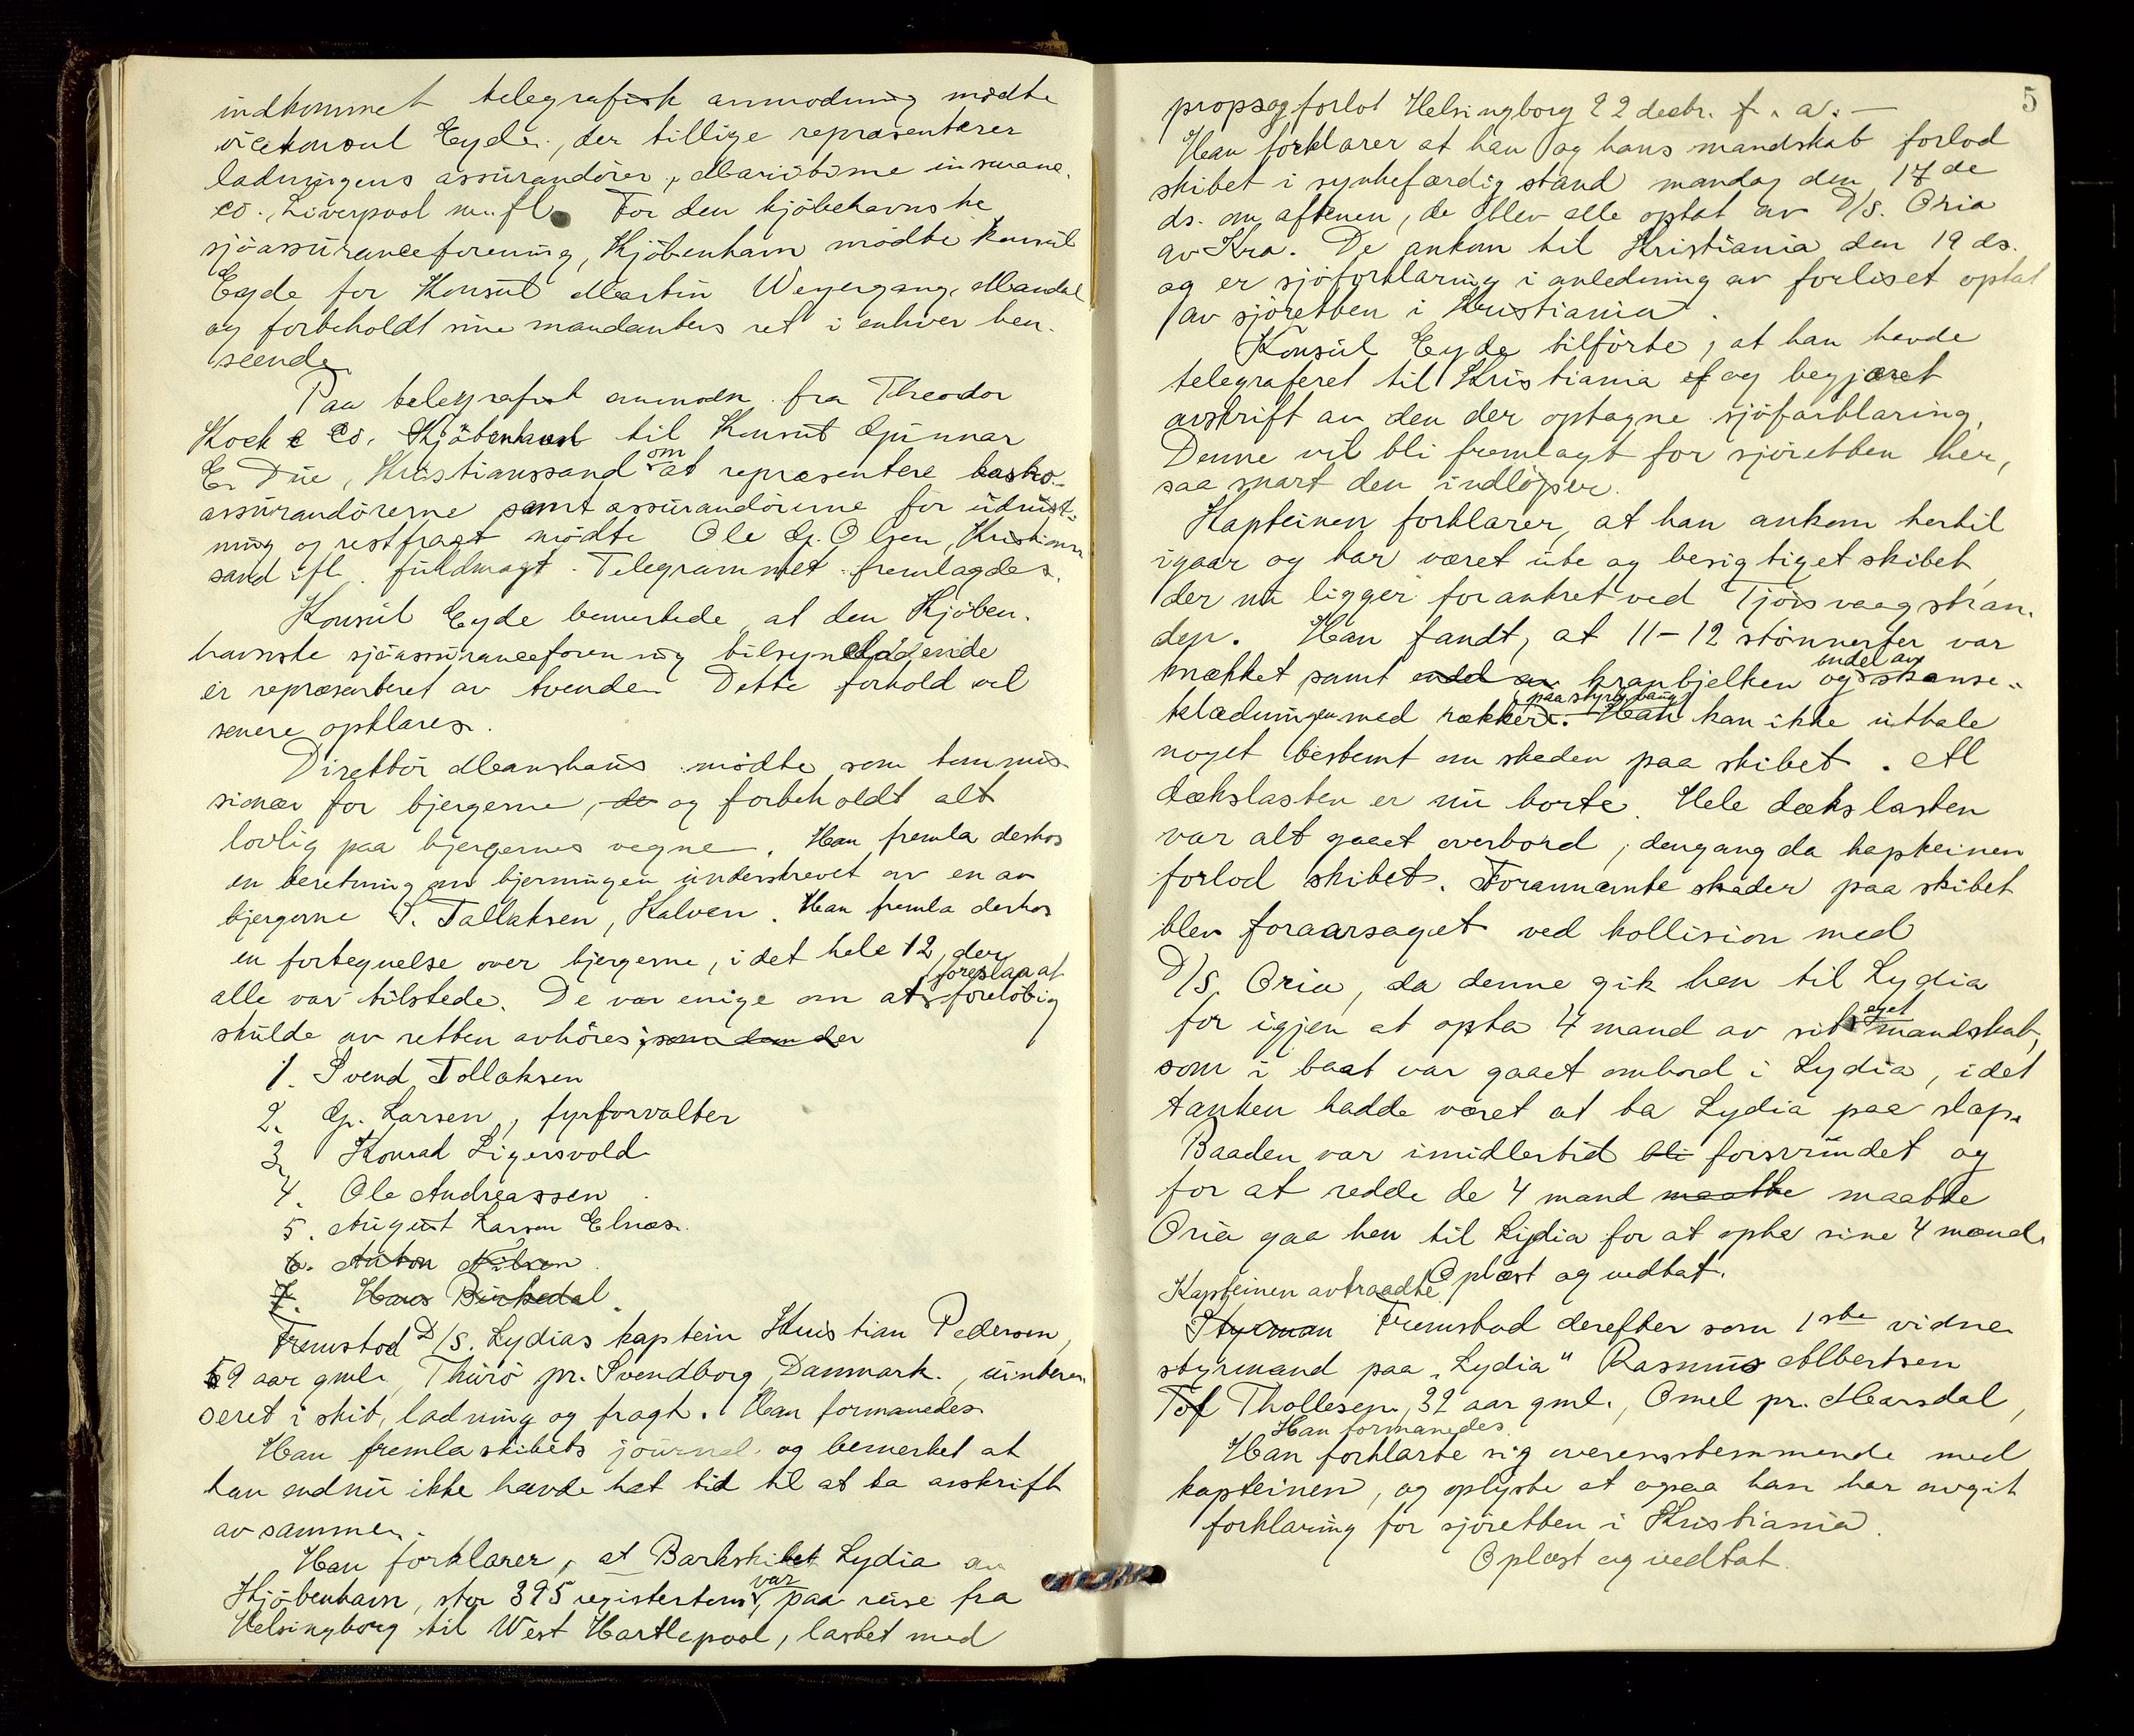 indkommet telegrafisk anmodning mödte
vicekonsul Eyde, der tillige repræsenterer
ladningens assurandörer, Maritime insurane.
co., Liverpool m. fl. For den kjöbehavnske
sjöassuranceforening, Kjöbenhavn mödte konsul
Eyde for Konsul Martin Weyergang, Mandal
og forbeholdt sine mandanters ret i enhver hen-
seende.
Paa telegrafisk anmodn. fra Theodor
Kock & Co. Kjöbenhavn til Konsul Gunnar
E. Due, Kristianssand om at repræsentere kasko-
assurandörerne samt assurandörerne for udrust-
ning og restfragt mödte Ole G. Olsen, Kristians-
sand ifl. fuldmagt. Telegrammet fremlagdes.
Konsul Eyde bemerkede, at den Kjöben-
havnske sjöassuranceforening tilsyneladende
er repræsenteret av tvende. Dette forhold vil
senere opklares.
Direktör Manshaus mödte som kommis-
sionær for bjergerne, de og forbeholdt alt
lovlig paa bjergernes vegne. Han fremla derhos
en beretning om bjerningen underskrevet av en av
bjergerne S. Tallaksen, Kalven. Han fremla derhos
en fortegnelse over bjergerne, i det hele 12, der
alle var tilstede. De var enige om at foreslaa at foreløbig
skulde av retten avhöres; som dem der
1. Svend Tollaksen
2. G. Larsen, fyrforvalter
3. Konrad Ligersvold
4. Ole Andreassen
5. August Larsen Elnæs.
6. Anton Nilsen
7. Hans Birkedal.
Fremstod D/S. Lydias kaptein Kristian Pedersen,
59 aar gml., Thurö pr. Svendborg, Danmark., uinteres-
seret i skib, ladning og fragt. Han formanedes
Han fremla skibets journal og bemerket at
han endnu ikke havde hat tid til at ta avskrift
av samme.
Han forklarer, at Barkskibet Lydia av
Kjöbenhavn, stor 395 registertons, var paa reise fra
Helsingborg til West Hartlepool, lastet med
5
props og forlot Helsingborg 22 decbr. f. a. —
Han forklarer at han og hans mandskab forlod
skibet i synkefærdig stand mandag den 17de
ds. om aftenen, de blev alle optat av D/S. Oria
av Kra. De ankom til Kristiania den 19 ds.
og er sjöforklaring i anledning av forliset optat
av sjöretten i Kristiania.
Konsul Eyde tilförte, at han havde
telegraferet til Kristiania ef og begjæret
avskrift av den der optagne sjöforklaring.
Denne vil bli fremlagt for sjöretten her,
saa snart den indlöper.
Kapteinen forklarer, at han ankom hertil
igaar og har været ute og besigtiget skibet,
der nu ligger forankret ved Tjörsvaagstran-
den. Han fandt, at 11-12 stönnerter var
knækket samt endel av kranbjelken og endel av skanse-
klædningen med rækker paa styrb. baug. Han kan ikke uttale
noget bestemt om skaden paa skibet. Al
dækslasten er nu borte. Hele dækslasten
var alt gaaet overbord, dengang da kapteinen
forlod skibet. Forannævnte skader paa skibet
blev foraarsaget ved kollision med
D/S. Oria, da denne gik hen til Lydia
for igjen at opta 4 mand av sit eget mandskab,
som i baat var gaaet ombord i Lydia, idet
tanken hadde været at ta Lydia paa slæp.
Baaden var imidlertid bli forsvundet og
for at redde de 4 mand maatte maatte
Oria gaa hen til Lydia for at opta sine 4 mænd.
Oplæst og vedtat.
Kapteinen avtraadte
Styrman Fremstod derefter som 1ste vidne
styrmand paa "Lydia" Rasmus Albertsen
Tof Thollesen, 32 aar gml., Omel pr. Marsdal,
Han formanedes.
Han forklarte sig overensstemmende med
kapteinen, og oplyste at ogsaa han har avgit
forklaring for sjöretten i Kristiania.
Oplæst og vedtat.